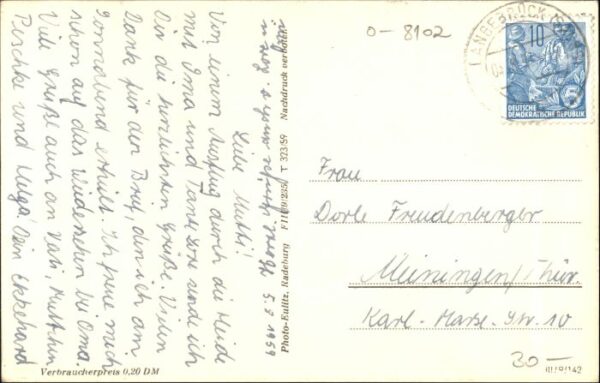 0-8102
LANGEBRÜCK
10
DEUTSCHE
DEMOKRATISCHE REPUBLIK
5
5.9.1959
Liebe Mutti!
Von einem Ausflug durch die Heide
mit Oma und Tante sende ich
Dir die herzlichsten Grüße. Vielen
Dank für den Brief, den ich am
Sonnabend erhielt. Ich freue mich
schon auf das Wiedersehen bei Oma.
Viele Grüße auch an Vati,
Peschke und Dein Ekkehard
Photo-Eulitz, Radeburg T 323/59 Nachdruck verboten
Verbraucherpreis 0,20 DM
Frau
Dorle Freudenberger
Meiningen/Thür.
Karl-Marx-Str. 10
30-
III/9/142